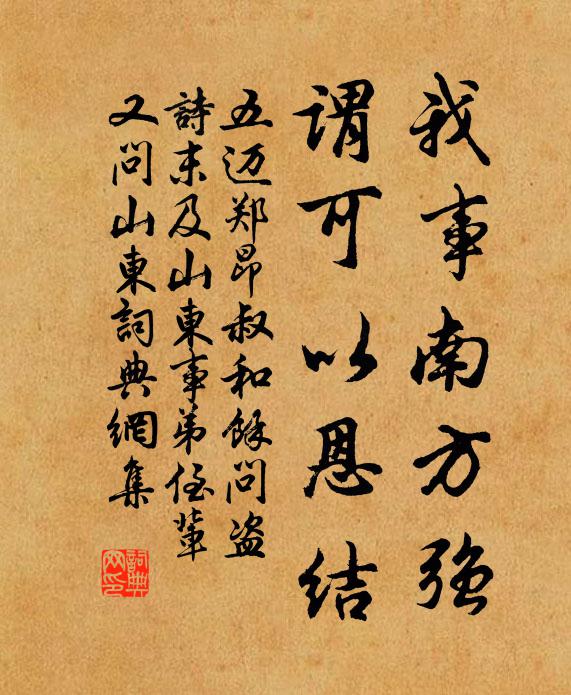 我事南方强
谓可以恩结
五迈郑昂叔和餘问盗
詩末及山東事弟侄輩
又问山東詞典網集
詞典網印